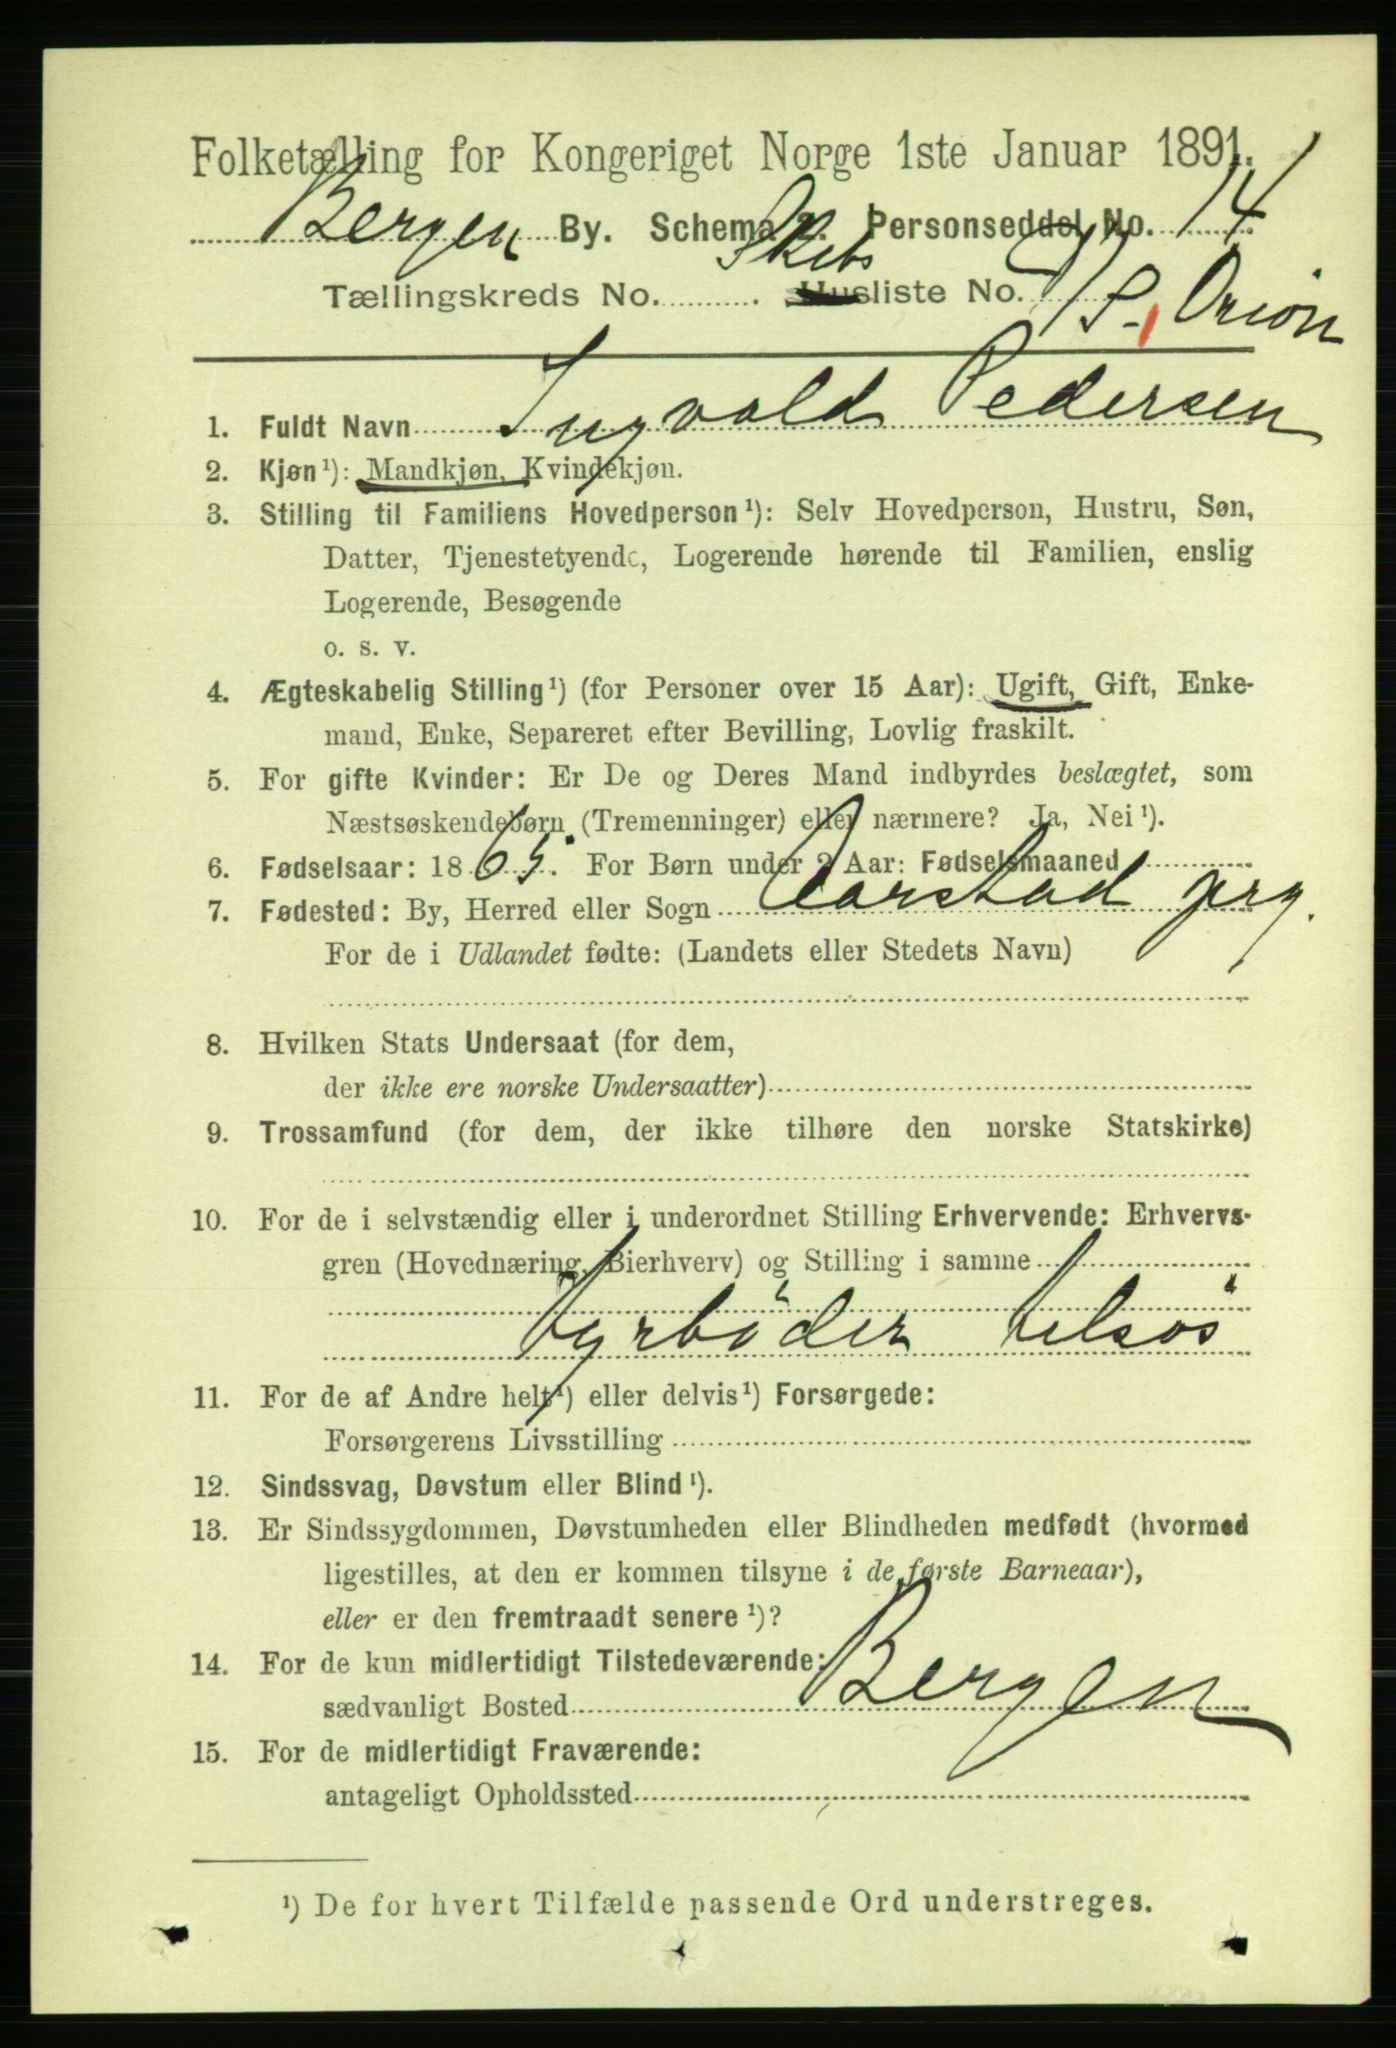 Folketælling for Kongeriget Norge 1ste Januar 1891.
Bergen By. Schema 2. Personseddel No. 14
Tællingskreds No. Skibsliste No. D/S. Orion
1. Fuldt Navn Ingvald Pedersen
2. Kjøn¹): Mandkjøn, Kvindekjøn.
3. Stilling til Familiens Hovedperson¹): Selv Hovedperson, Hustru, Søn,
Datter, Tjenestetyende, Logerende hørende til Familien, enslig
Logerende, Besøgende
o. s. v.
4. Ægteskabelig Stilling¹) (for Personer over 15 Aar): Ugift, Gift, Enke-
mand, Enke, Separeret efter Bevilling, Lovlig fraskilt.
5. For gifte Kvinder: Er De og Deres Mand indbyrdes beslægtet, som
Næstsøskendebørn (Tremenninger) eller nærmere? Ja, Nei¹).
6. Fødselsaar: 1865. For Børn under 2 Aar: Fødselsmaaned
7. Fødested: By, Herred eller Sogn Aarstad prg.
For de i Udlandet fødte: (Landets eller Stedets Navn)
8. Hvilken Stats Undersaat (for dem,
der ikke ere norske Undersaatter)
9. Trossamfund (for dem, der ikke tilhøre den norske Statskirke)
10. For de i selvstændig eller i underordnet Stilling Erhvervende: Erhvervs-
gren (Hovednæring, Bierhverv) og Stilling i samme
Fyrböder tilsös
11. For de af Andre helt¹) eller delvis¹) Forsørgede:
Forsørgerens Livsstilling
12. Sindssvag, Døvstum eller Blind¹).
13. Er Sindssygdommen, Døvstumheden eller Blindheden medfødt (hvormed
ligestilles, at den er kommen tilsyne i de første Barneaar),
eller er den fremtraadt senere¹)?
14. For de kun midlertidigt Tilstedeværende:
sædvanligt Bosted Bergen
15. For de midlertidigt Fraværende:
antageligt Opholdssted
¹) De for hvert Tilfælde passende Ord understreges.